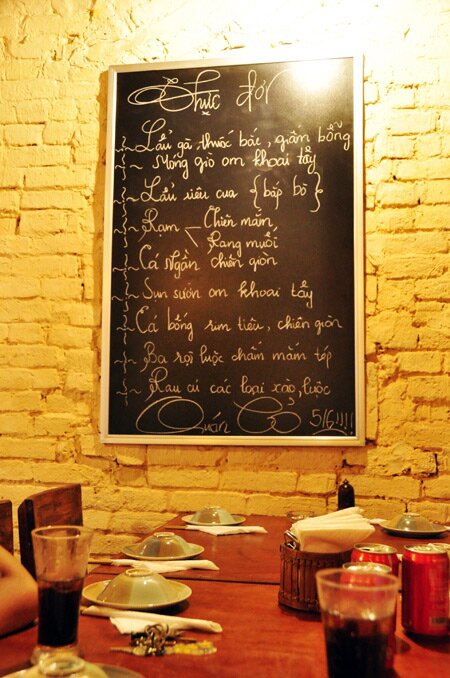 Thực đơn
Lẩu gà thuốc bắc, giấm bỗng
Móng giò om khoai tẩy
Lẩu riêu cua {bắp bò}
Rạm Chiên mắm
Rang muối
Cá Ngần chiên giòn
Sun sườn om khoai tẩy
Cá bống rim tiêu, chiên giòn
Ba rọi luộc chấm mắm tép
Rau củ các loại xào, luộc
Quán 5/6!!!!